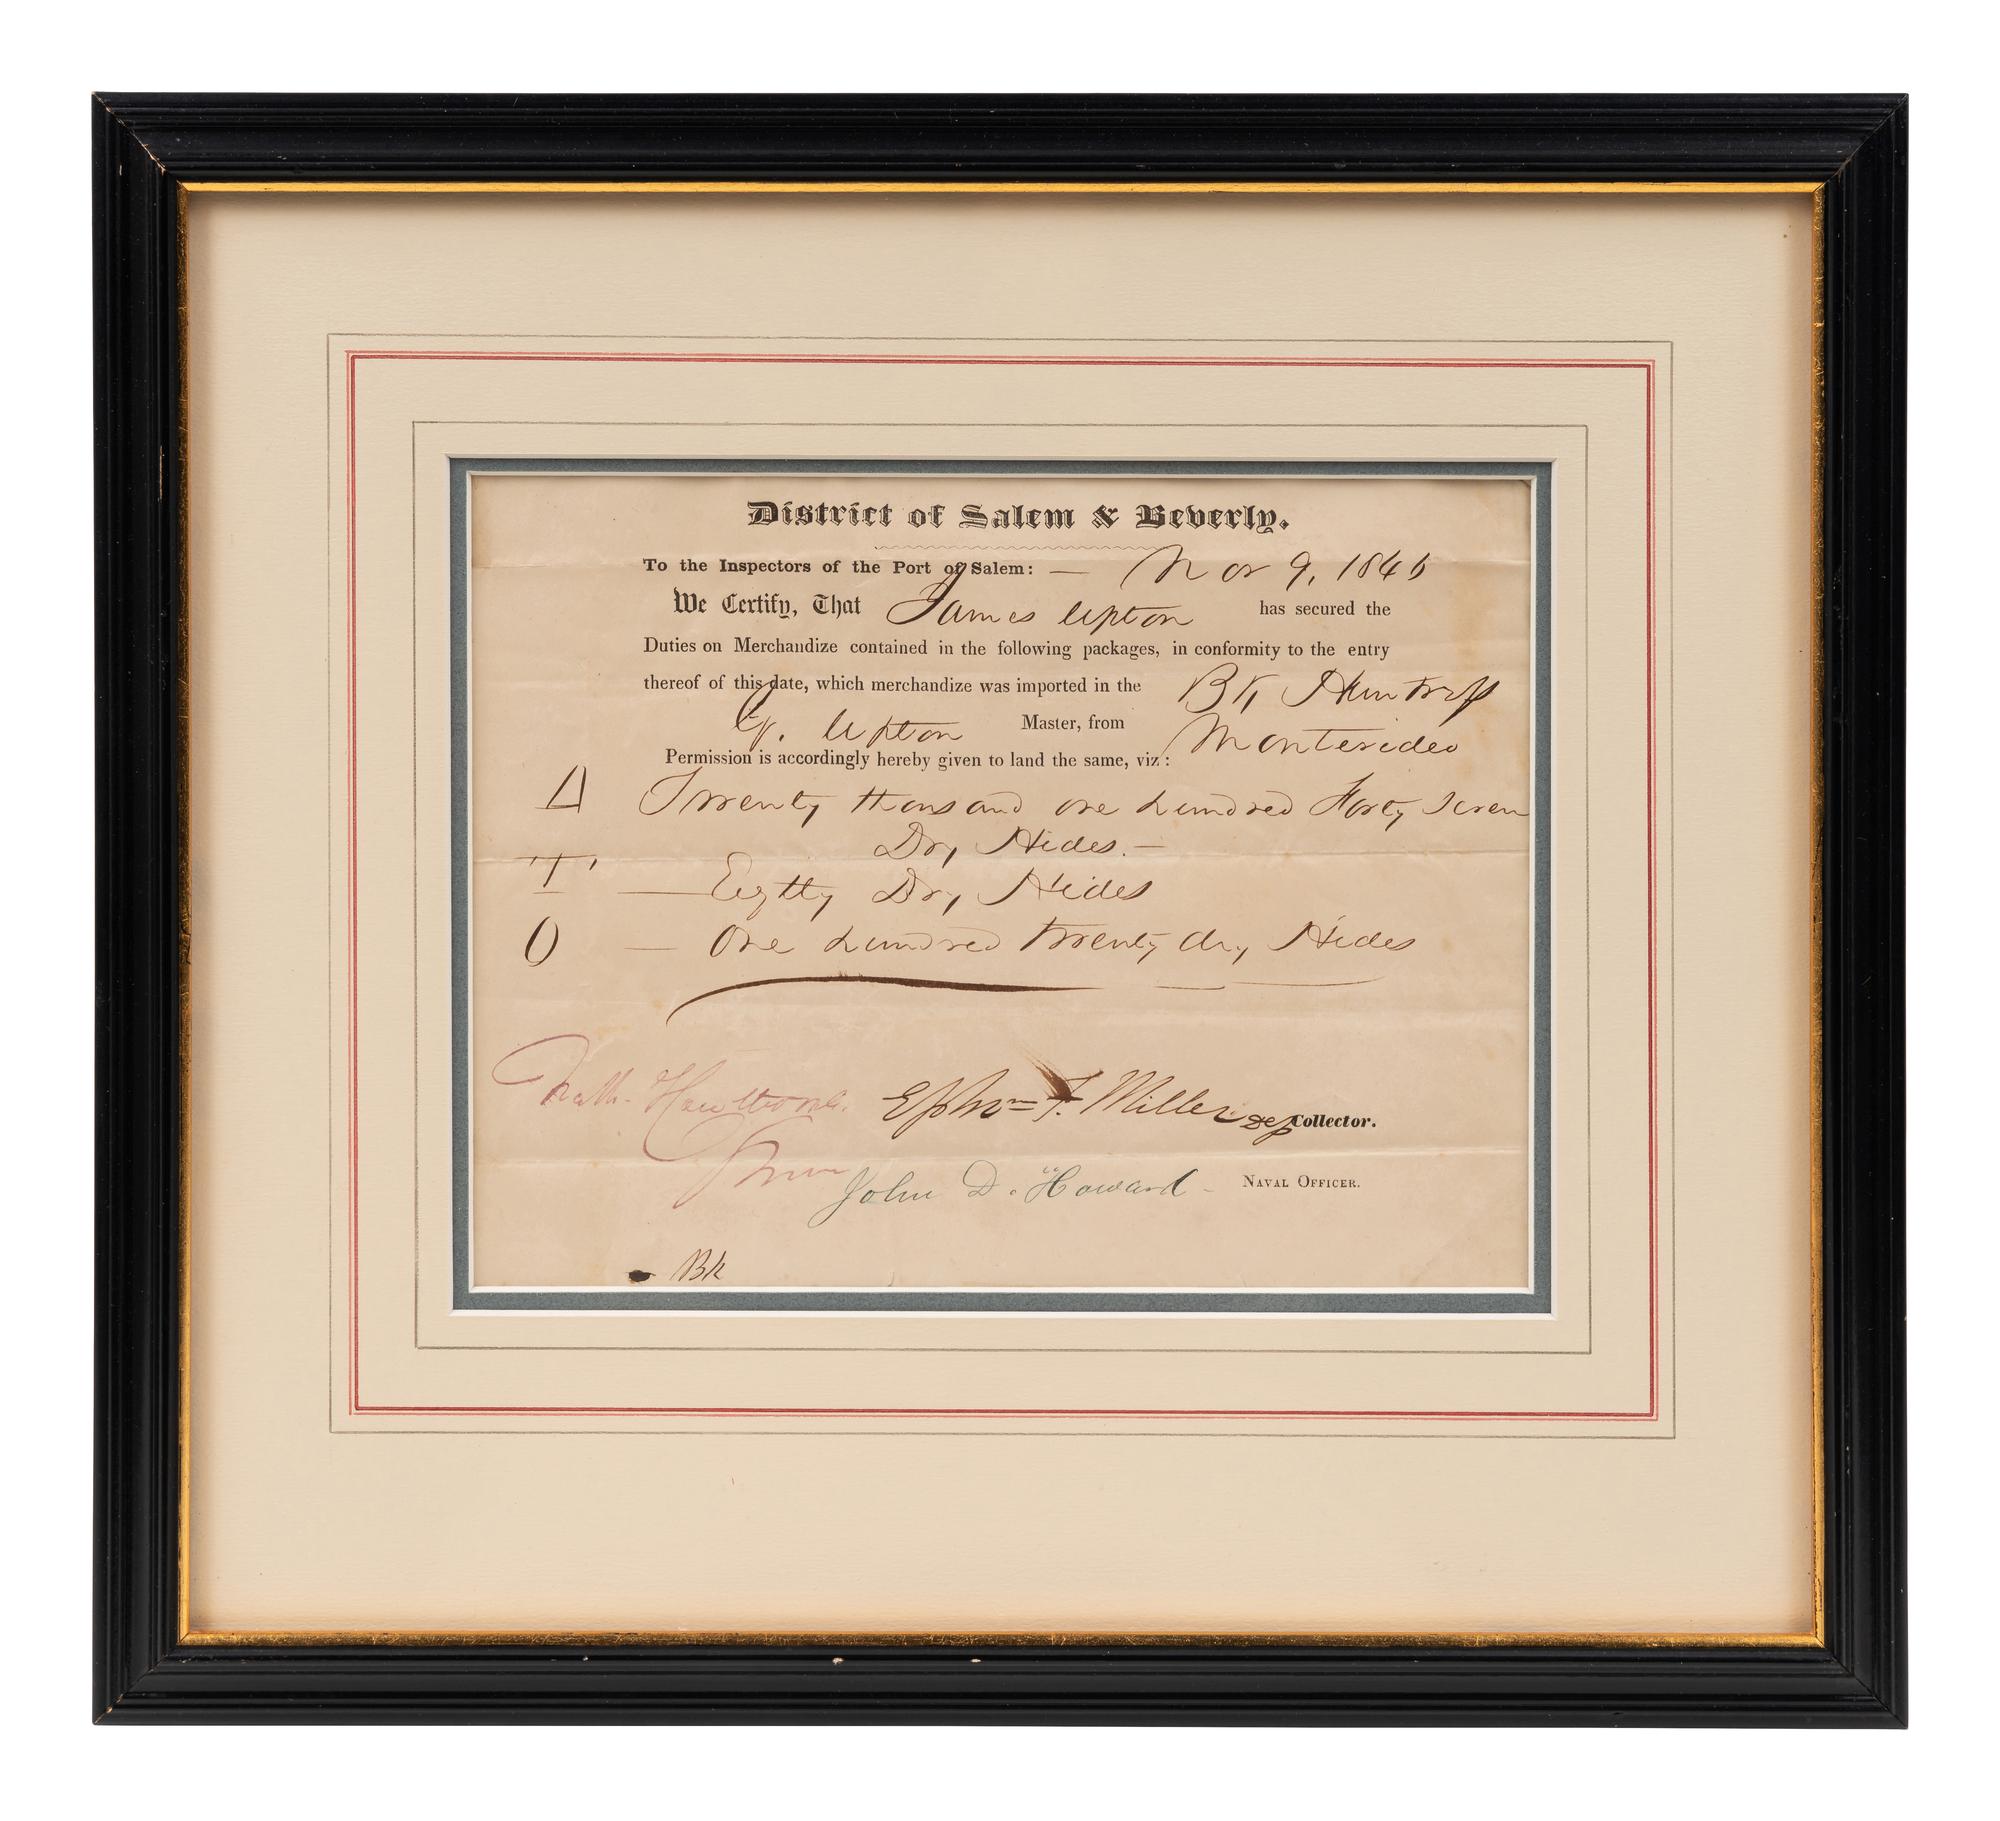 District of Salem & Beverly.
To the Inspectors of the Port of Salem: — Nov 9, 1846
We Certify, That James Upton has secured the
Duties on Merchandize contained in the following packages, in conformity to the entry
thereof of this date, which merchandize was imported in the Bk
Upton Master, from Montevideo
Permission is accordingly hereby given to land the same, viz:
Twenty thousand one hundred Forty Seven
Dry Hides. —
T — Eighty Dry Hides
O — One hundred twenty dry Hides
Nath. Hawthorne. Ephm F. Miller dep Collector.
Surv
John D. Howard - Naval Officer.
Bk